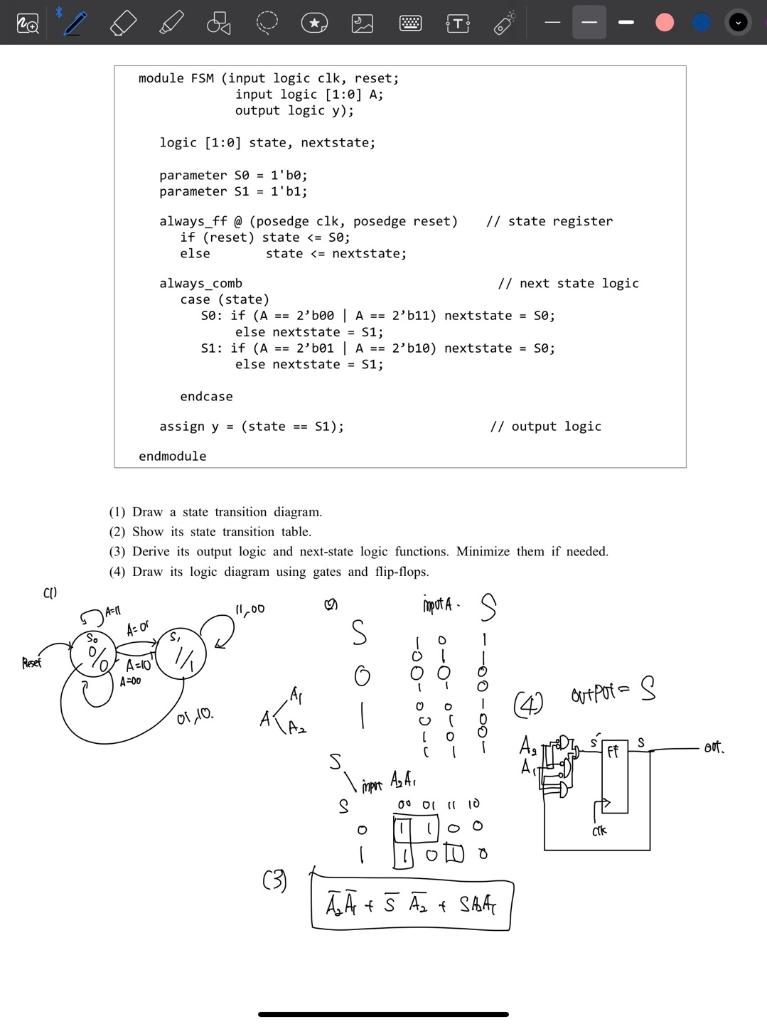 module FSM (input logic clk, reset;
input logic [1:0] A;
output logic y);
logic [1:0] state, nextstate;
parameter S0 = 1'b0;
parameter S1 = 1'b1;
always_ff @ (posedge clk, posedge reset) // state register
if (reset) state <= S0;
else state <= nextstate;
always_comb // next state logic
case (state)
S0: if (A == 2'b00 | A == 2'b11) nextstate = S0;
else nextstate = S1;
S1: if (A == 2'b01 | A == 2'b10) nextstate = S0;
else nextstate = S1;
endcase
assign y = (state == S1); // output logic
endmodule
(1) Draw a state transition diagram.
(2) Show its state transition table.
(3) Derive its output logic and next-state logic functions. Minimize them if needed.
(4) Draw its logic diagram using gates and flip-flops.
A=11
A=01
S0
0/0
A=10
A=00
Reset
S1
1/1
11,00
01,10.
input A. S
S
0
1
A A1
A2
S
input A2A1
S 00 01 11 10
0 1 1 0 0
1 1 0 1 0
(3)
A̅2A̅1 + S̅ A̅2 + SA2A1
(4) output = S
A2
A1
S'
FF
S
out.
clk